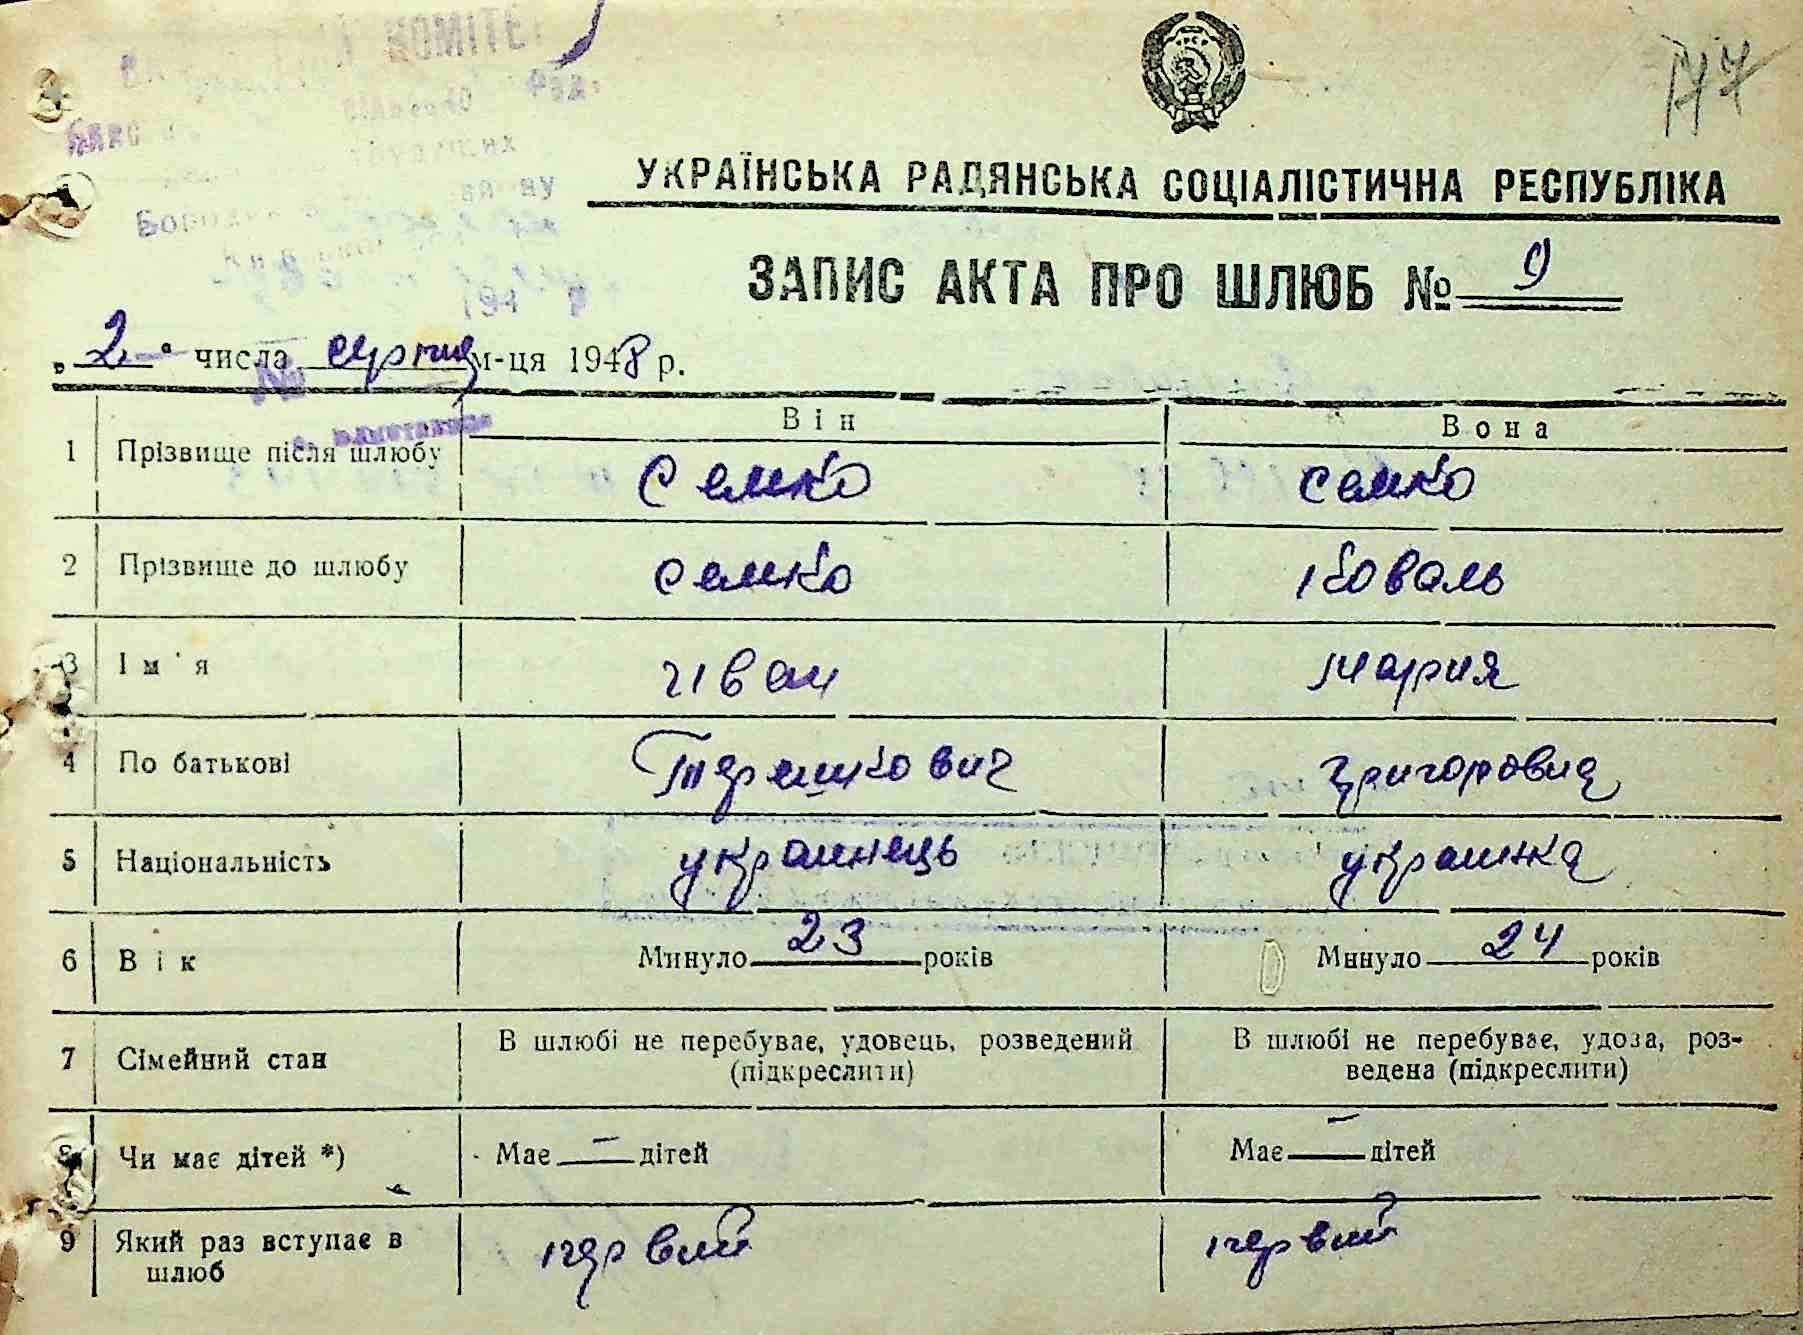 КОМІТЕТ
УКРАЇНСЬКА РАДЯНСЬКА СОЦІАЛІСТИЧНА РЕСПУБЛІКА
ЗАПИС АКТА ПРО ШЛЮБ № 9
„2" числа серпня м-ця 1948 р.
Він Вона
1 Прізвище після шлюбу Семко Семко
2 Прізвище до шлюбу Семко Коваль
3 Ім'я Иван Мария
4 По батькові Терешкович Григоровна
5 Національність украинець украинка
6 Вік Минуло 23 років Минуло 24 років
7 Сімейний стан В шлюбі не перебуває, удовець, розведений (підкреслити) В шлюбі не перебуває, удова, роз-
ведена (підкреслити)
8 Чи має дітей *) Має — дітей Має — дітей
9 Який раз вступає в шлюб первий первий